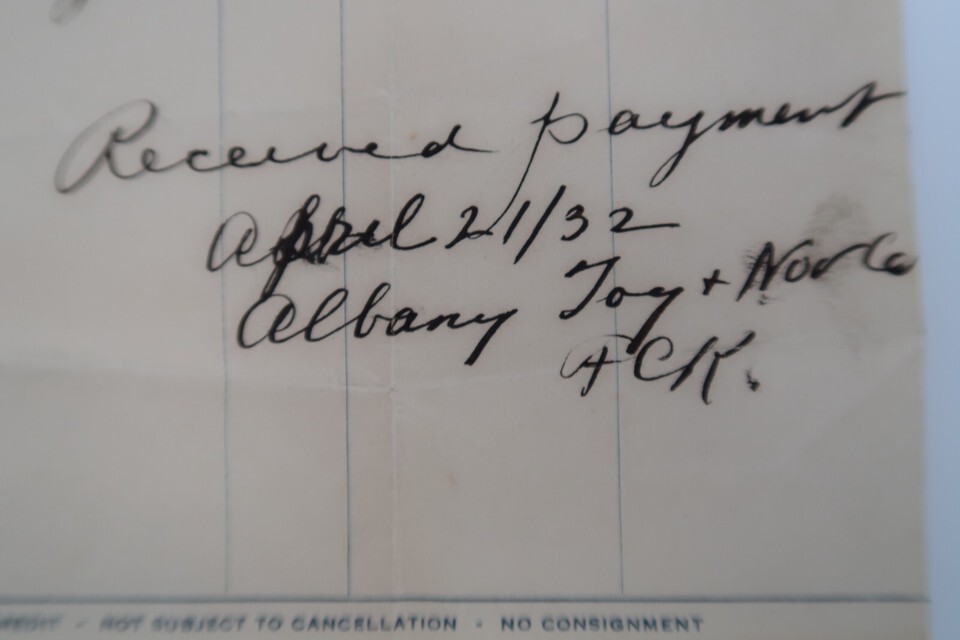 Received payment
April 21/32
Albany Toy + Nov Co
ACK.
CREDIT - NOT SUBJECT TO CANCELLATION - NO CONSIGNMENT